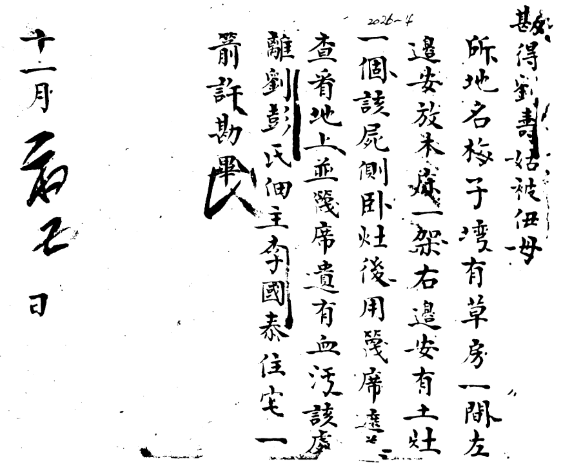 2026-4
勘得劉壽姑被伊母
所地名梅子灣有草房一間左
邊安放木床一架右邊安有土灶
一個該屍側卧灶後用篾席遮
查看地上並篾席遺有血污該處
離劉彭氏佃主李國泰住宅一
箭許勘畢
十一月 初七 日